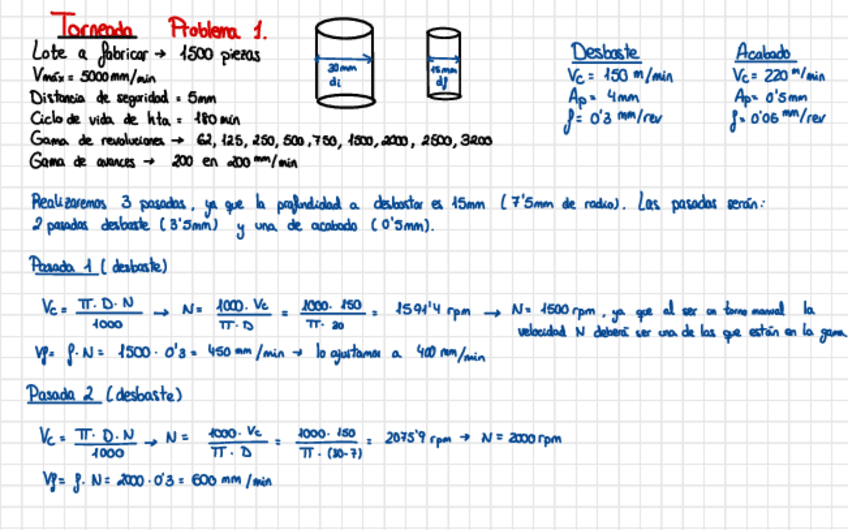 Torneado Problema 1.
Lote a fabricar → 1500 piezas
Vmáx = 5000 mm/min
Distancia de seguridad = 5mm
Ciclo de vida de hta = 180 min
Gama de revoluciones → 62, 125, 250, 500, 750, 1500, 2000, 2500, 3200
Gama de avances → 200 en 200 mm/min
30mm
di
15mm
df
Desbaste
Vc = 150 m/min
Ap = 4mm
f = 0'3 mm/rev
Acabado
Vc = 220 m/min
Ap = 0'5mm
f = 0'06 mm/rev
Realizaremos 3 pasadas, ya que la profundidad a desbastar es 15mm (7'5mm de radio). Las pasadas serán:
2 pasadas desbaste (3'5mm) y una de acabado (0'5mm).
Pasada 1 (desbaste)
Vc = π · D · N / 1000 → N = 1000 · Vc / π · D = 1000 · 150 / π · 30 = 1591'4 rpm → N = 1500 rpm, ya que al ser un torno manual la
velocidad N deberá ser una de las que están en la gama
Vf = f · N = 1500 · 0'3 = 450 mm/min → lo ajustamos a 400 mm/min
Pasada 2 (desbaste)
Vc = π · D · N / 1000 → N = 1000 · Vc / π · D = 1000 · 150 / π · (30-7) = 2075'9 rpm → N = 2000 rpm
Vf = f · N = 2000 · 0'3 = 600 mm/min